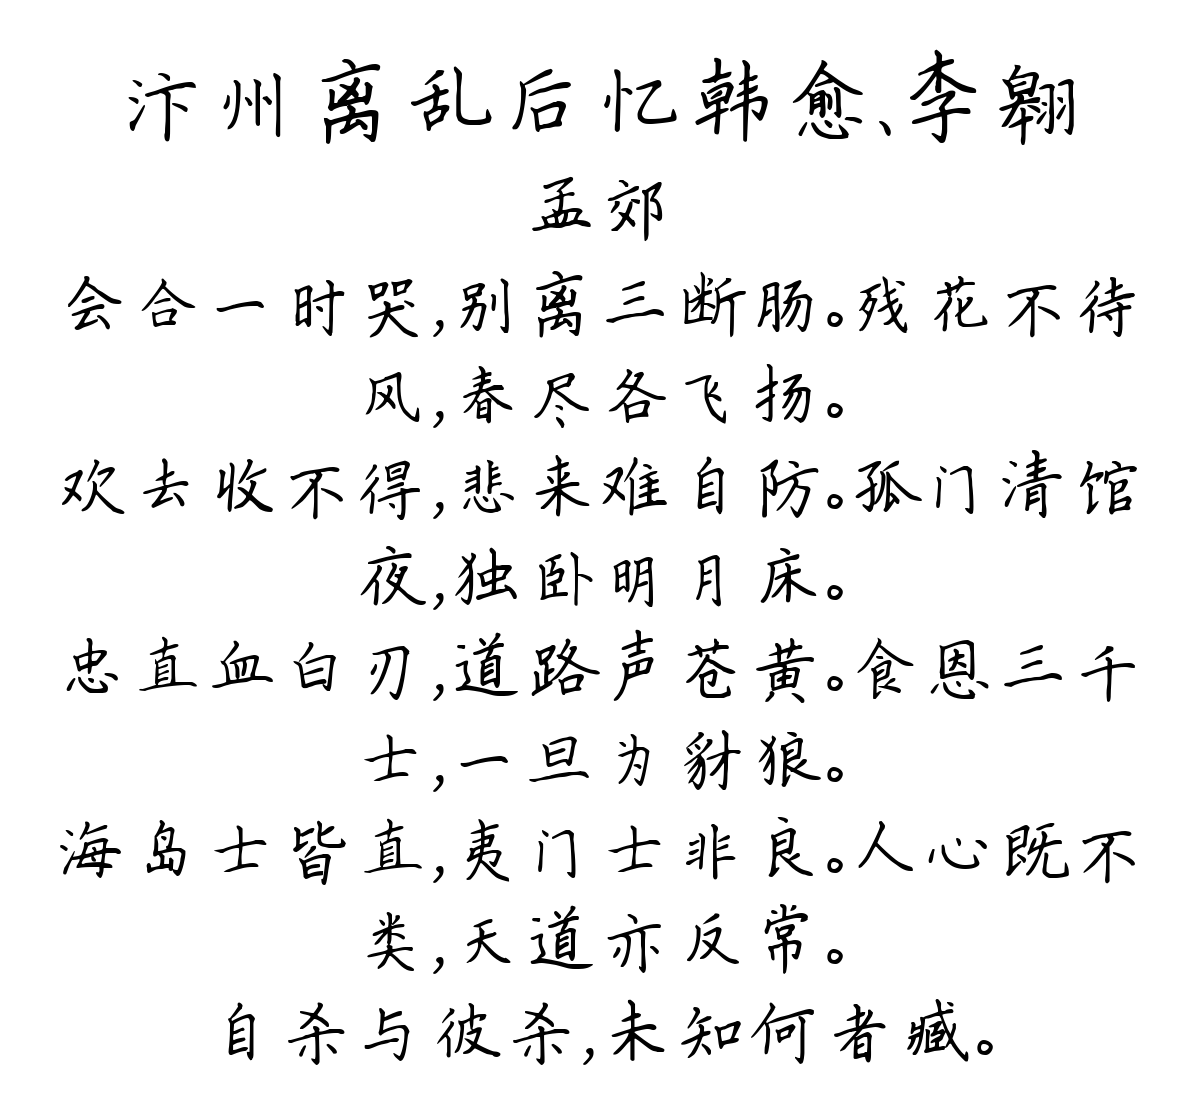 汴州离乱后忆韩愈、李翱
孟郊
会合一时哭,别离三断肠。残花不待
风,春尽各飞扬。
欢去收不得,悲来难自防。孤门清馆
夜,独卧明月床。
忠直血白刃,道路声苍黄。食恩三千
士,一旦为豺狼。
海岛士皆直,夷门士非良。人心既不
类,天道亦反常。
自杀与彼杀,未知何者臧。